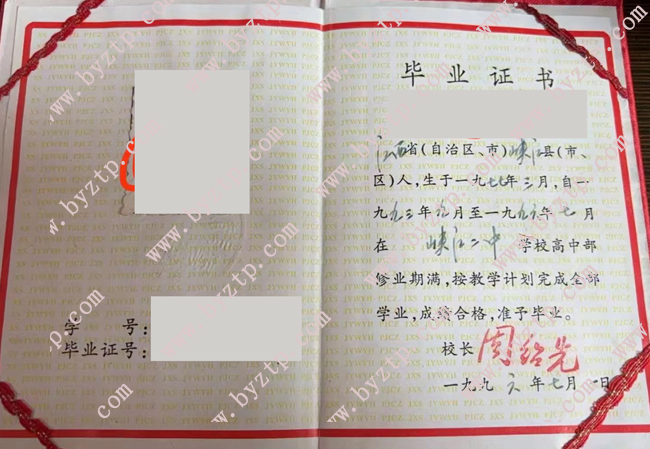 学 号：
毕业证号：
毕业证书
江西省(自治区、市)峡江县(市、
区)人，生于一九七七年三月，自一
九九三年九月至一九九六年七月
在 峡江二中 学校高中部
修业期满，按教学计划完成全部
学业，成绩合格，准予毕业。
校长 周绍光
一九九六年七月一日
www.byztp.com